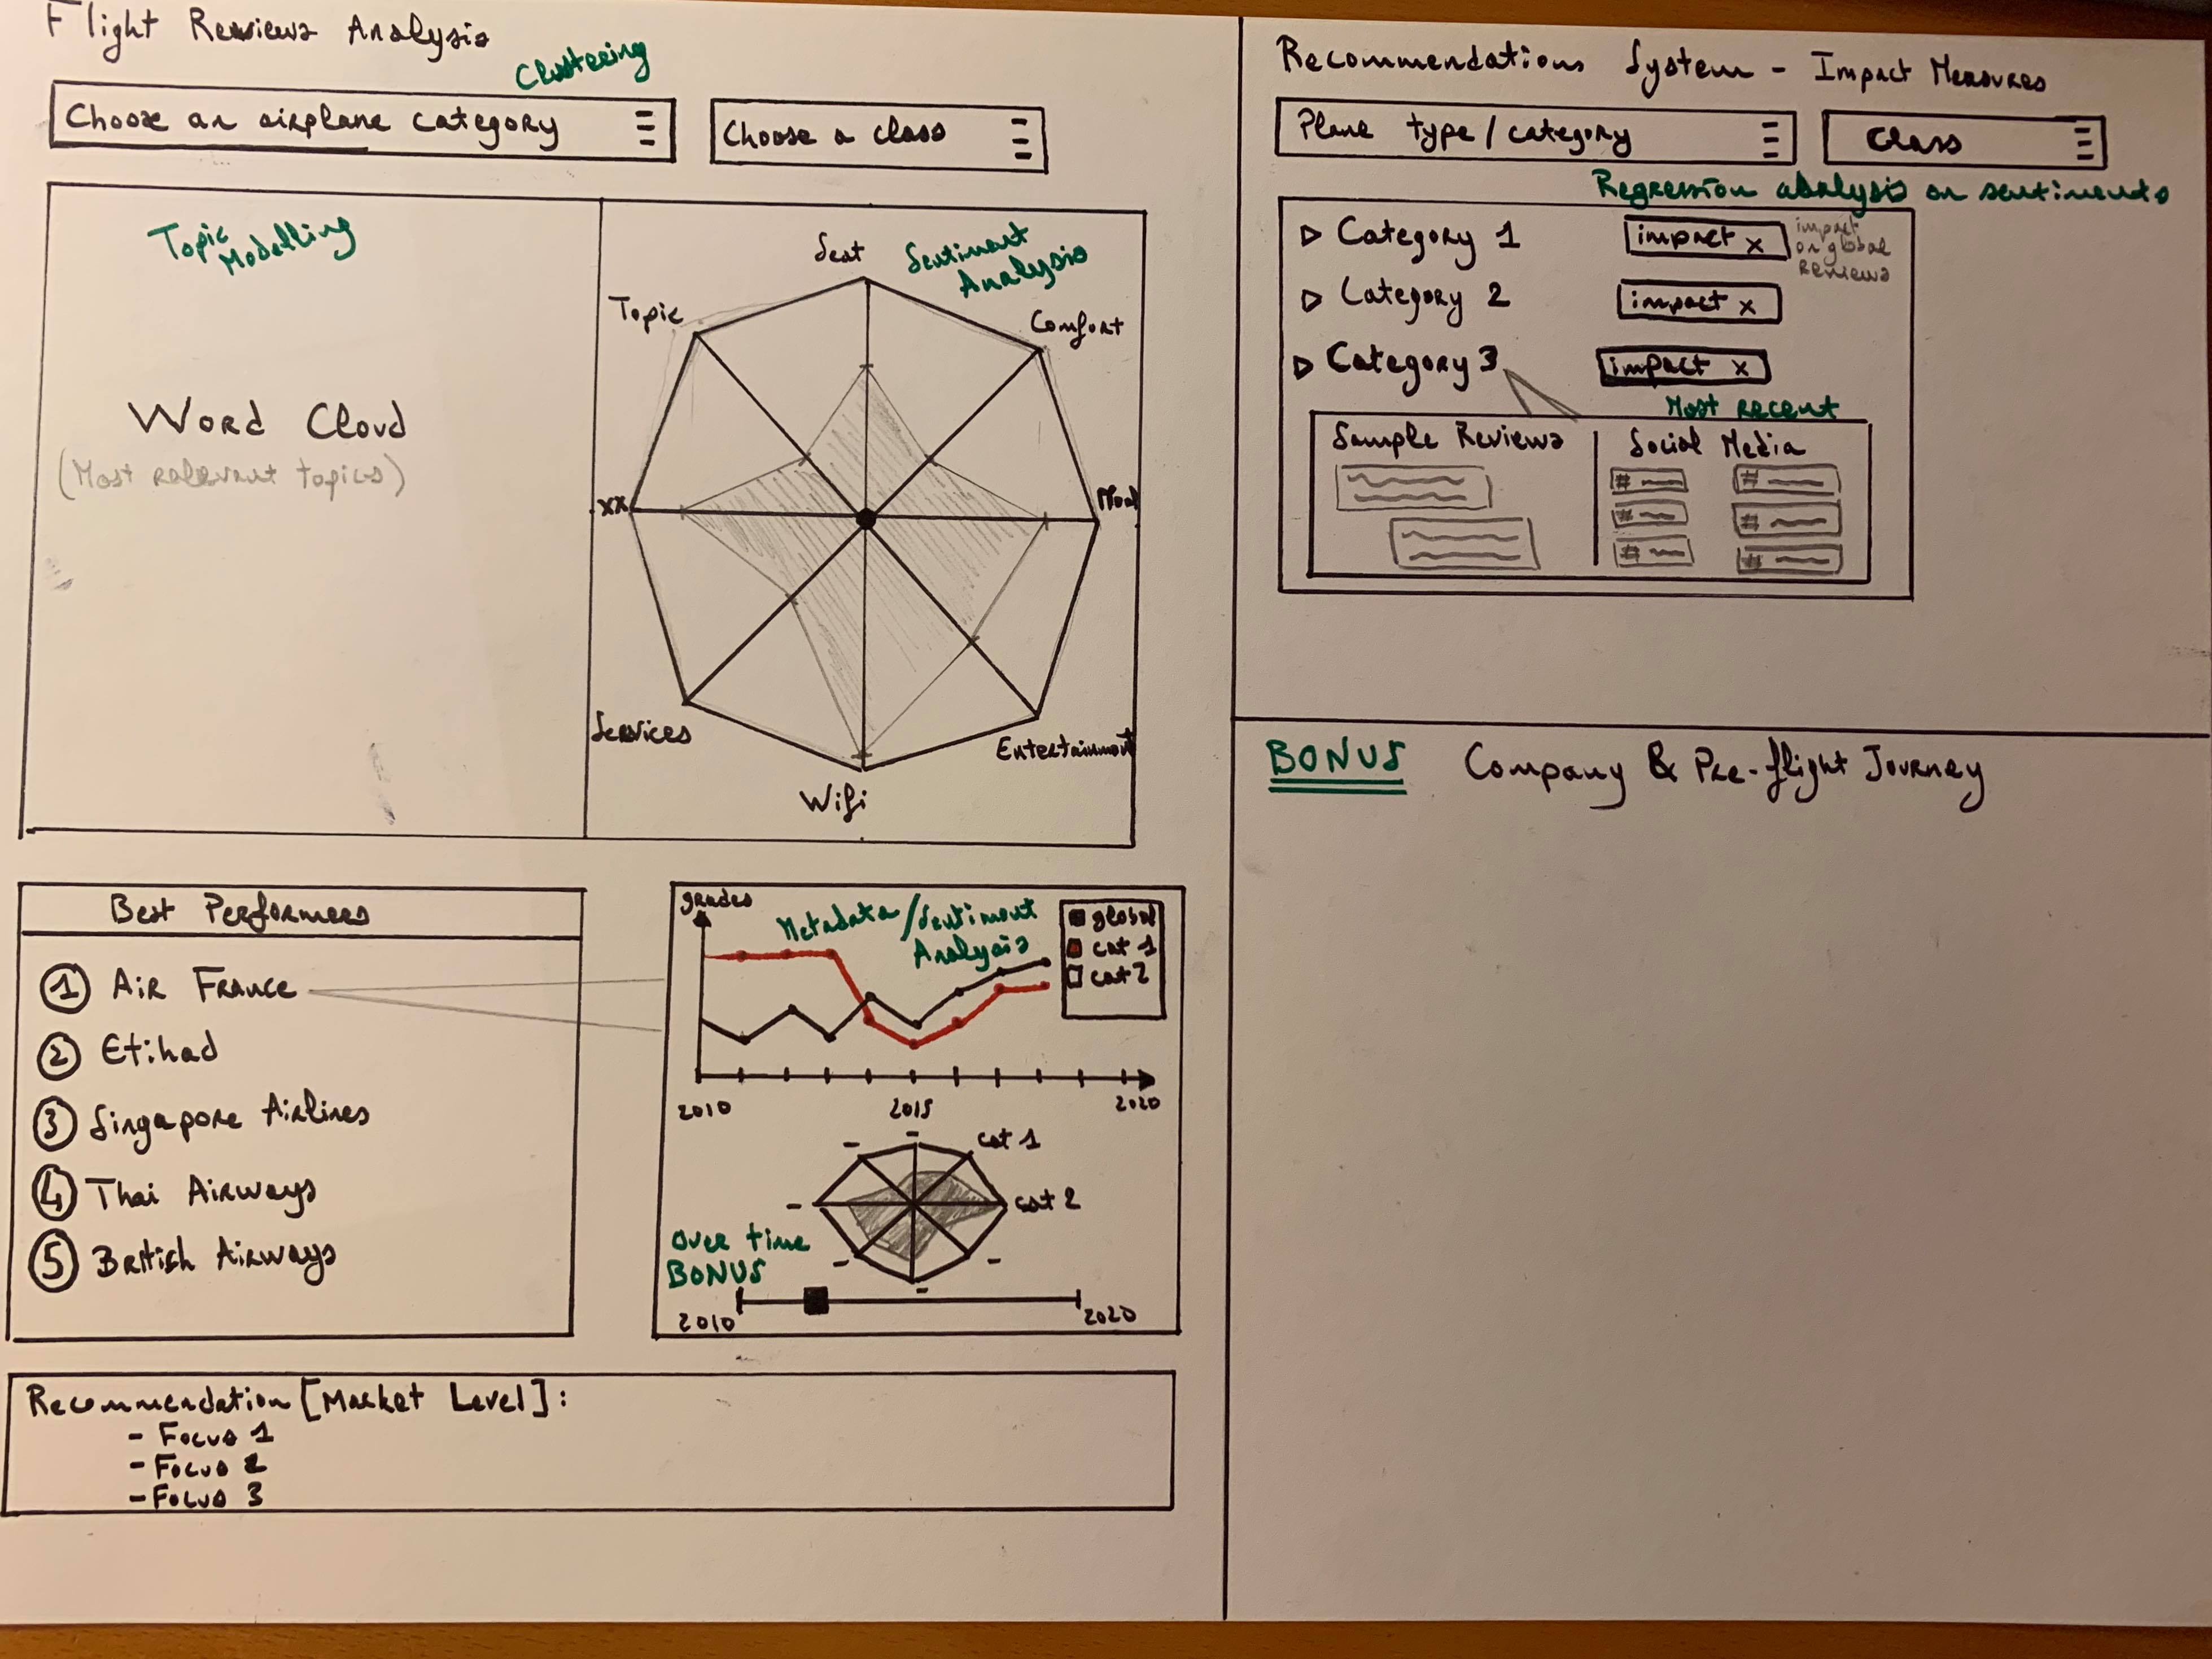 Flight Reviews Analysis
Clustering
Choose an airplane category
Choose a class
Topic
Modelling
Word Cloud
(Most relevant topics)
Sentiment
Analysis
Seat
Comfort
Topic
xx
Services
Wifi
Entertainment
Best Performers
1 Air France
2 Etihad
3 Singapore Airlines
4 Thai Airways
5 British Airways
grades
Metadata/Sentiment
Analysis
global
cat 1
cat 2
2010
2015
2020
cat 1
cat 2
Over time
BONUS
2010
2020
Recommendation [Market Level]:
- Focus 1
- Focus 2
- Focus 3
Recommendations System - Impact Measures
Plane type/category
Class
Regression analysis on sentiments
Category 1
impact x
impact
on global
reviews
Category 2
impact x
Category 3
impact x
Most recent
Sample Reviews
Social Media
#
#
#
#
#
#
BONUS Company & Pre-flight Journey